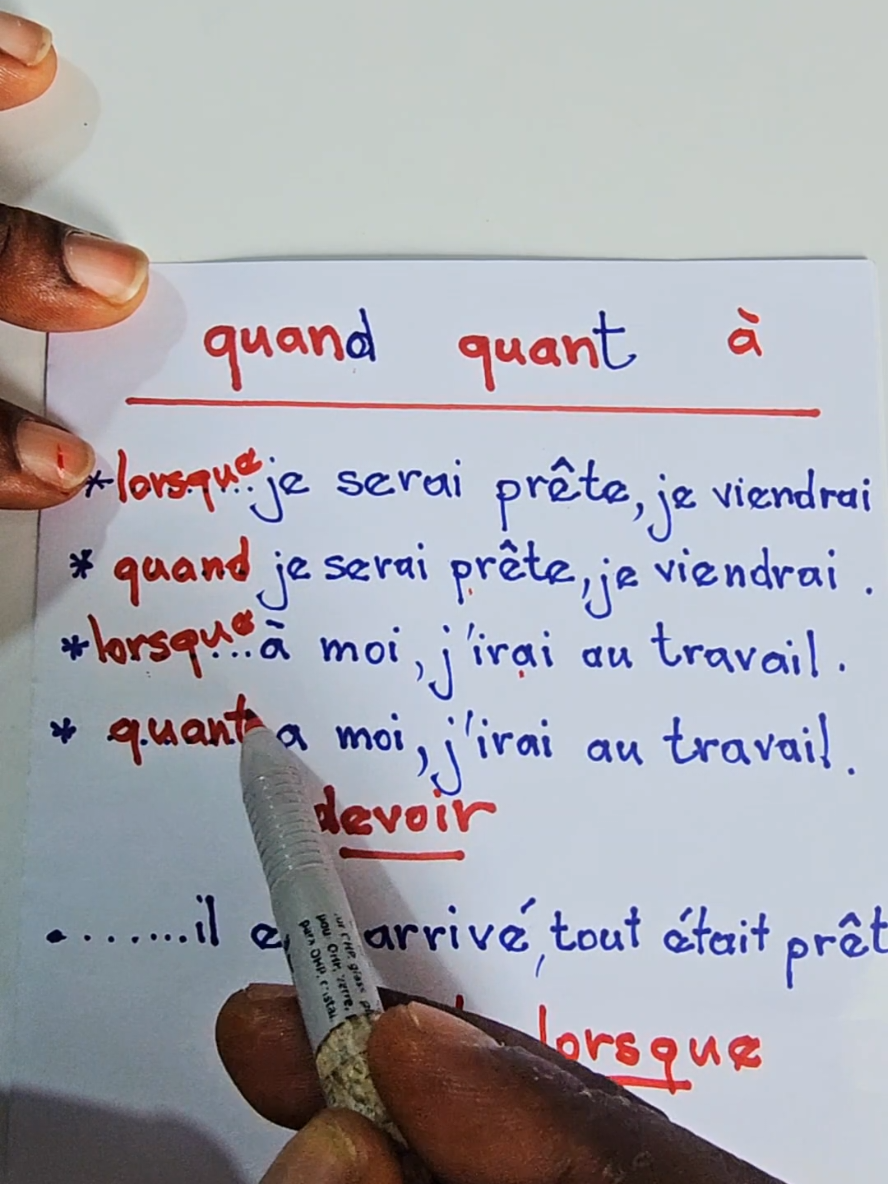 quand quant à
*lorsque...je serai prête, je viendrai
* quand je serai prête, je viendrai.
*lorsque...à moi, j'irai au travail.
* quant a moi, j'irai au travail.
devoir
.......il arrivé, tout était prêt
lorsque